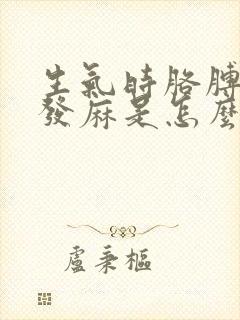 生氣時胳膊
發麻是怎麼
盧秉樞